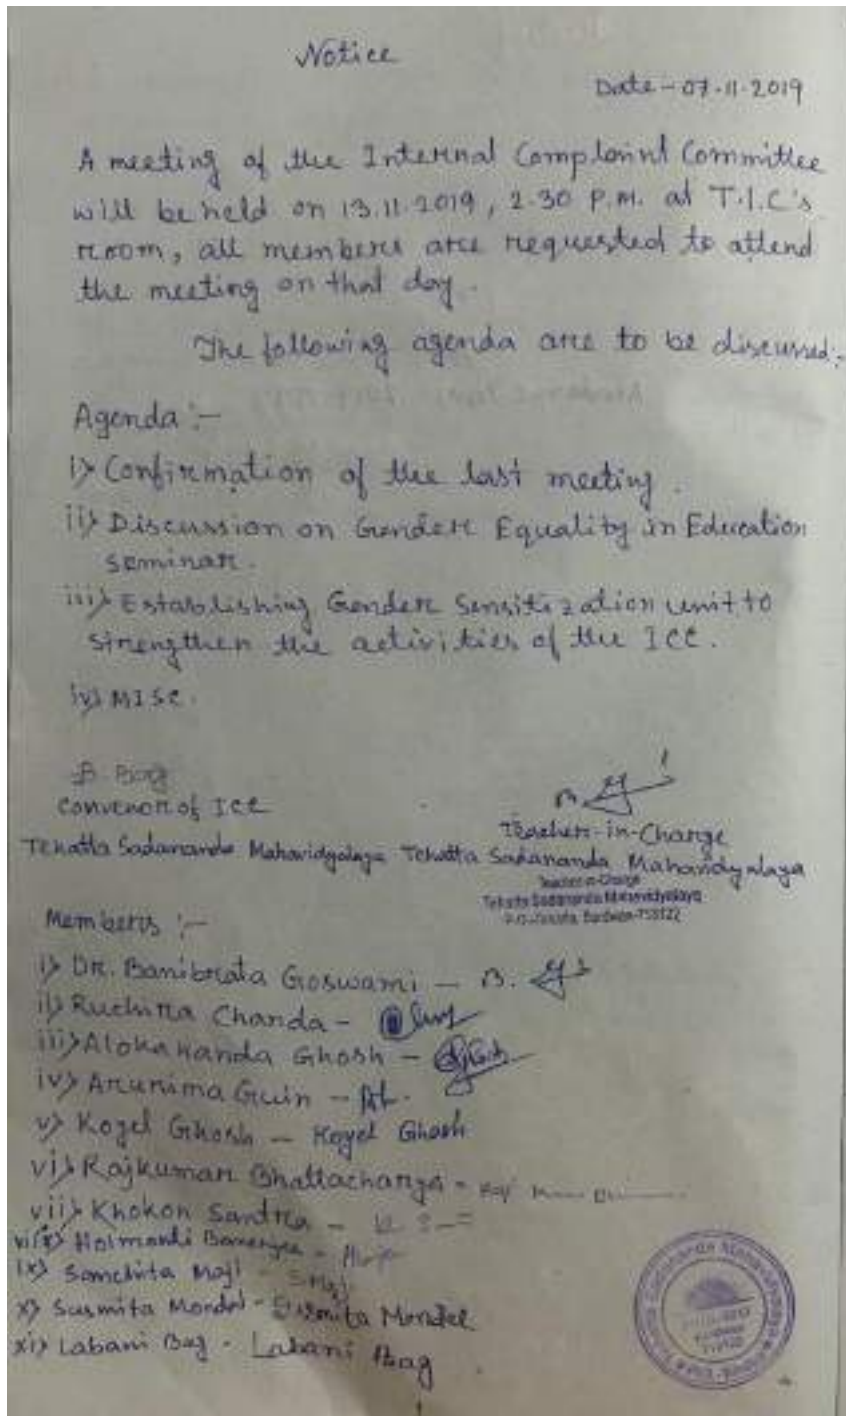 Notice
Date - 07.11.2019
A meeting of the Internal Complaint Committee
will be held on 13.11.2019, 2.30 P.M. at T.I.C's
room, all members are requested to attend
the meeting on that day.
The following agenda are to be discussed:-
Agenda :-
i> Confirmation of the last meeting.
ii> Discussion on Gender Equality in Education
seminar.
iii> Establishing Gender Sensitization unit to
strengthen the activities of the ICC.
iv> MISC.
B. Bag
Convenor of ICC
Teacher-in-Charge
Tehatta Sadananda Mahavidyalaya Tehatta Sadananda Mahavidyalaya
Teacher-in-Charge
Tehatta Sadananda Mahavidyalaya
Members :-
i> Dr. Banibrata Goswami - B.
ii> Ruchira Chanda -
iii> Alokananda Ghosh -
iv> Arunima Guin -
v> Koyel Ghosh - Koyel Ghosh
vi> Rajkumar Bhattacharya -
vii> Khokon Santra -
viii> Hoimanti Banerjee -
ix> Sanchita Maji - S. Maji
x> Susmita Mondal - Susmita Mondal
xi> Labani Bag - Labani Bag